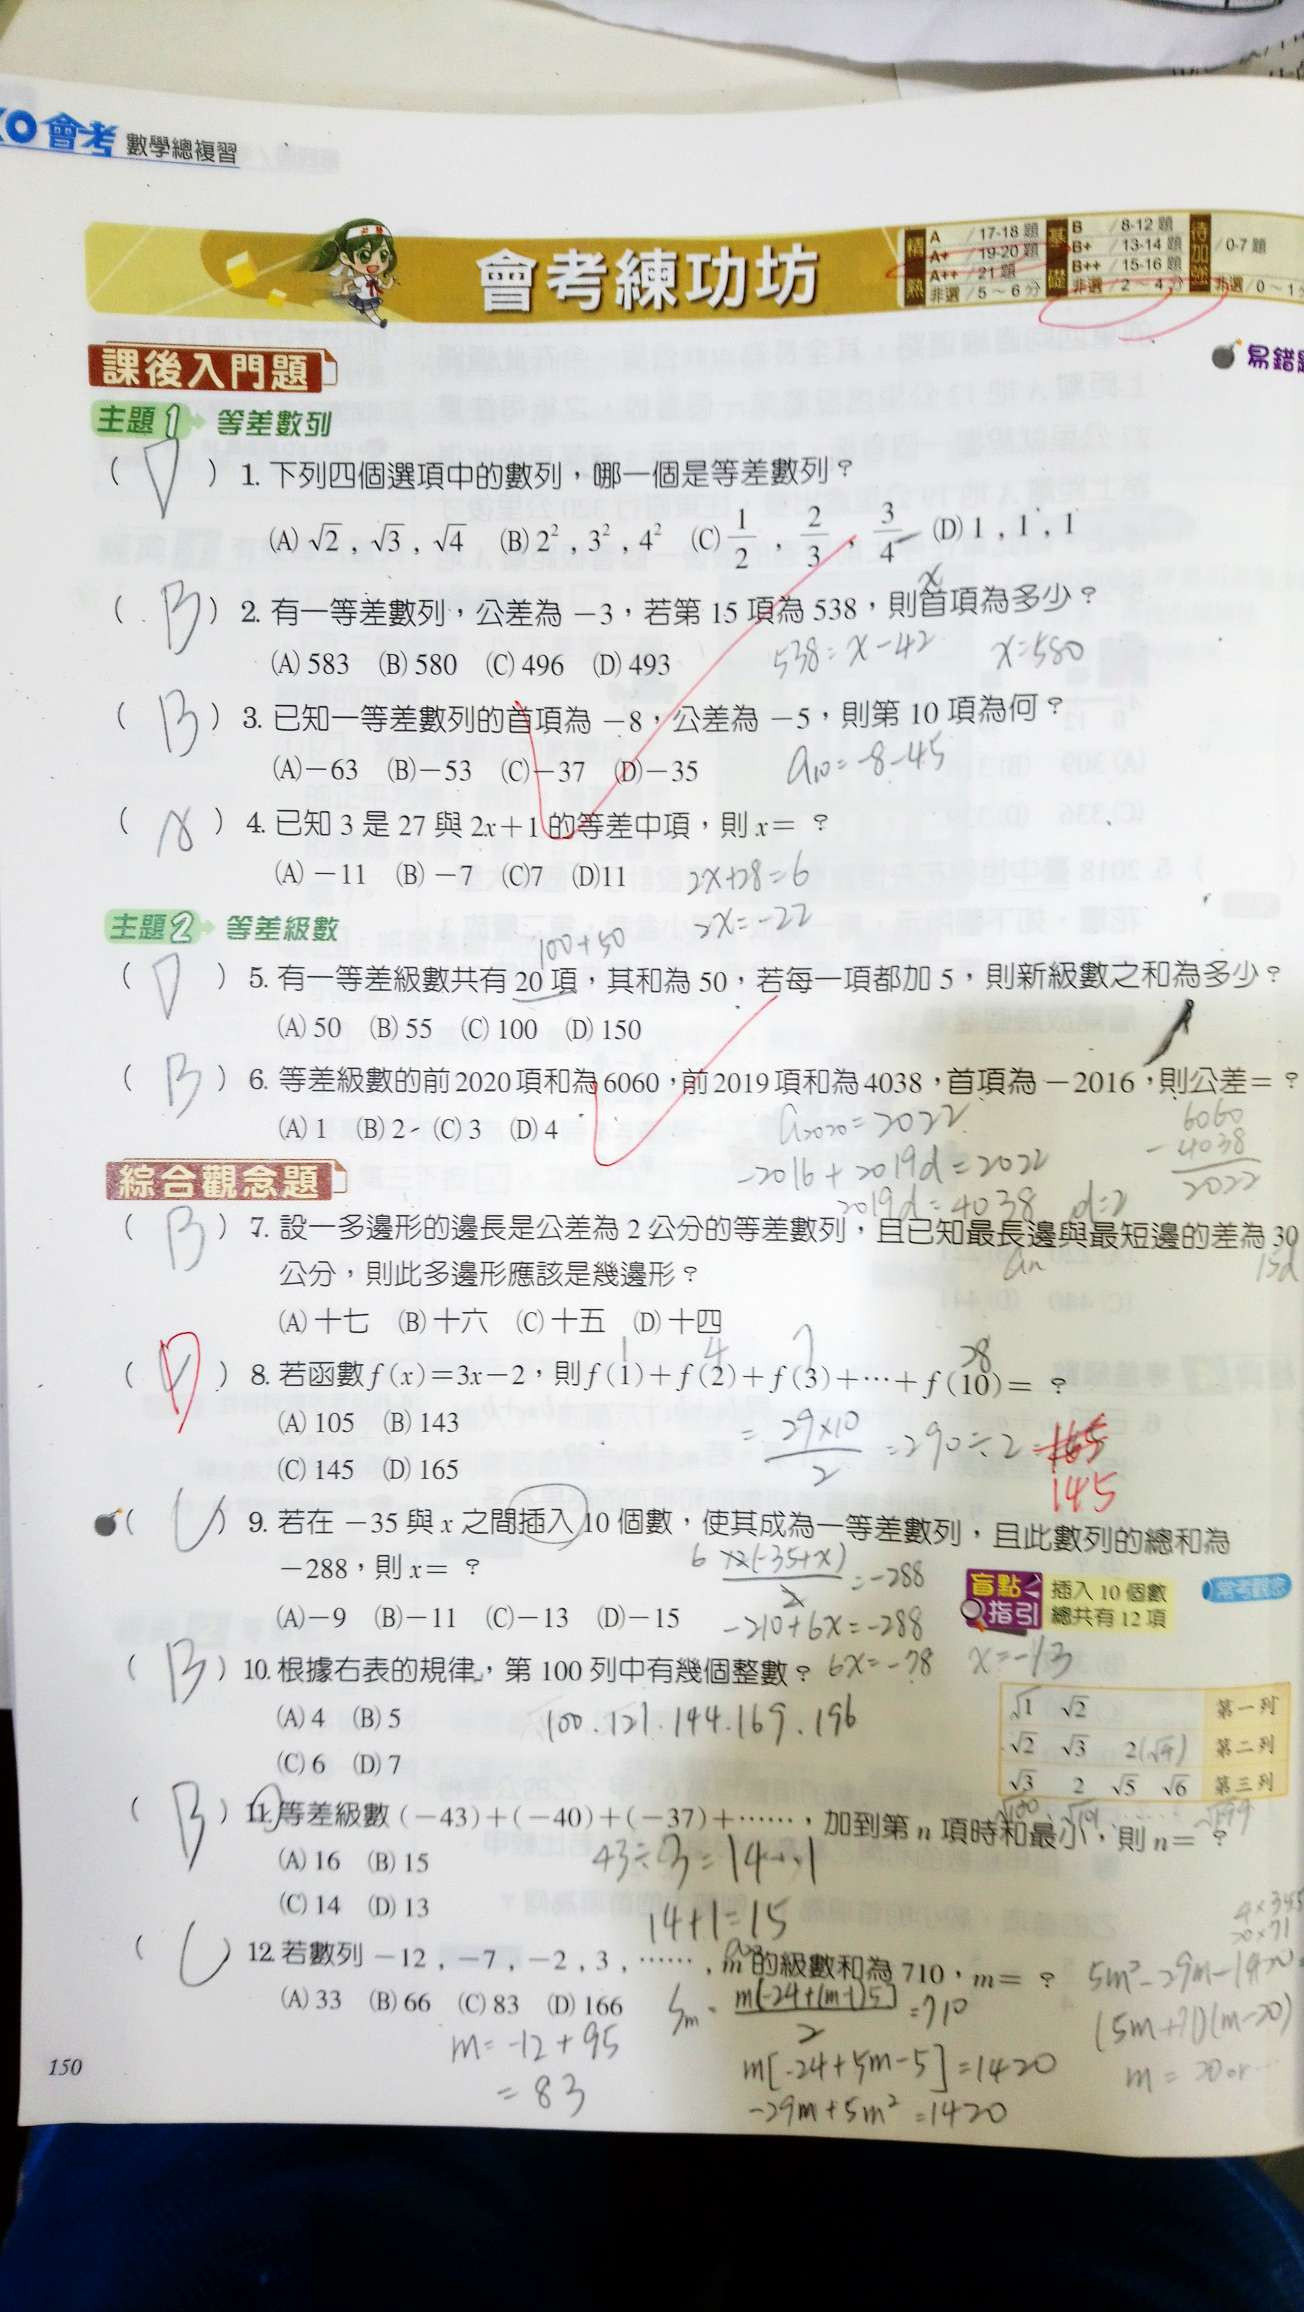 KO 會考 數學總複習
會考練功坊
精熟 A /17-18 題
A+ /19-20 題
A++ /21 題
非選/5～6分
基礎 B /8-12 題
B+ /13-14 題
B++ /15-16 題
非選/2～4分
待加強 /0-7 題
非選/0～1
易錯題
課後入門題
主題1 等差數列
( D ) 1. 下列四個選項中的數列，哪一個是等差數列？
(A) √2 , √3 , √4 (B) 2² , 3² , 4² (C) 1/2 , 2/3 , 3/4 (D) 1 , 1 , 1
( B ) 2. 有一等差數列，公差為 −3，若第 15 項為 538，則首項為多少？
x
(A) 583 (B) 580 (C) 496 (D) 493
538=x−42 x=580
( B ) 3. 已知一等差數列的首項為 −8，公差為 −5，則第 10 項為何？
(A)−63 (B)−53 (C)−37 (D)−35
a10=−8−45
( A ) 4. 已知 3 是 27 與 2x+1 的等差中項，則 x= ？
(A) −11 (B) −7 (C)7 (D)11
2x+28=6
2x=−22
主題2 等差級數
100+50
( D ) 5. 有一等差級數共有 20 項，其和為 50，若每一項都加 5，則新級數之和為多少？
(A) 50 (B) 55 (C) 100 (D) 150
( B ) 6. 等差級數的前 2020 項和為 6060，前 2019 項和為 4038，首項為 −2016，則公差= ？
(A) 1 (B) 2 (C) 3 (D) 4
a2020=2022
−2016+2019d=2022
2019d=4038 d=2
6060
−4038
2022
綜合觀念題
( B ) 7. 設一多邊形的邊長是公差為 2 公分的等差數列，且已知最長邊與最短邊的差為 30
an 15d
公分，則此多邊形應該是幾邊形？
(A) 十七 (B) 十六 (C) 十五 (D) 十四
1 4 7 28
8. 若函數 f (x)=3x−2，則 f (1)+f (2)+f (3)+⋯+f (10)= ？
(A) 105 (B) 143
(C) 145 (D) 165
=29×10/2 =290÷2=165
145
( C ) 9. 若在 −35 與 x 之間插入 10 個數，使其成為一等差數列，且此數列的總和為
−288，則 x= ？
(A)−9 (B)−11 (C)−13 (D)−15
6 12(−35+x)/2=−288
−210+6x=−288
6x=−78 x=−13
盲點指引 插入 10 個數
總共有 12 項
常考觀念
( B ) 10. 根據右表的規律，第 100 列中有幾個整數？
(A) 4 (B) 5
(C) 6 (D) 7
100.121.144.169.196
√1 √2 第一列
√2 √3 2(√4) 第二列
√3 2 √5 √6 第三列
√100 √101 …… √199
( B ) 11. 等差級數 (−43)+(−40)+(−37)+……，加到第 n 項時和最小，則 n= ？
(A) 16 (B) 15
(C) 14 (D) 13
43÷3=14…1
14+1=15
( C ) 12. 若數列 −12 , −7 , −2 , 3 , …… , m 的級數和為 710，m= ？
(A) 33 (B) 66 (C) 83 (D) 166
m=−12+95
=83
Sm=m[−24+(m−1)5]/2=710
m[−24+5m−5]=1420
−29m+5m²=1420
5m²−29m−1420
(5m+71)(m−20)
m=20or
150